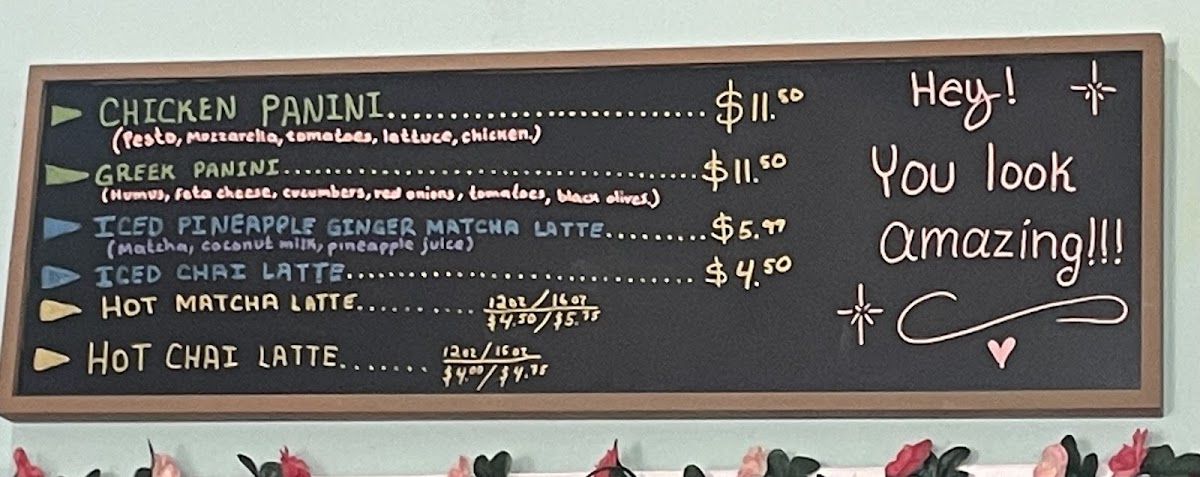 CHICKEN PANINI................................ $11.50
(Pesto, Mozzarella, tomatoes, lattuce, chicken.)
GREEK PANINI............................................... $11.50
(Humus, Feta cheese, cucumbers, red onions, tomatoes, black olives.)
ICED PINEAPPLE GINGER MATCHA LATTE......... $5.99
(Matcha, coconut milk, pineapple juice)
ICED CHAI LATTE....................................... $4.50
HOT MATCHA LATTE........... 12oz/16oz
$4.50/$5.75
HOT CHAI LATTE........ 12oz/16oz
$4.00/$4.75
Hey!
You look
amazing!!!